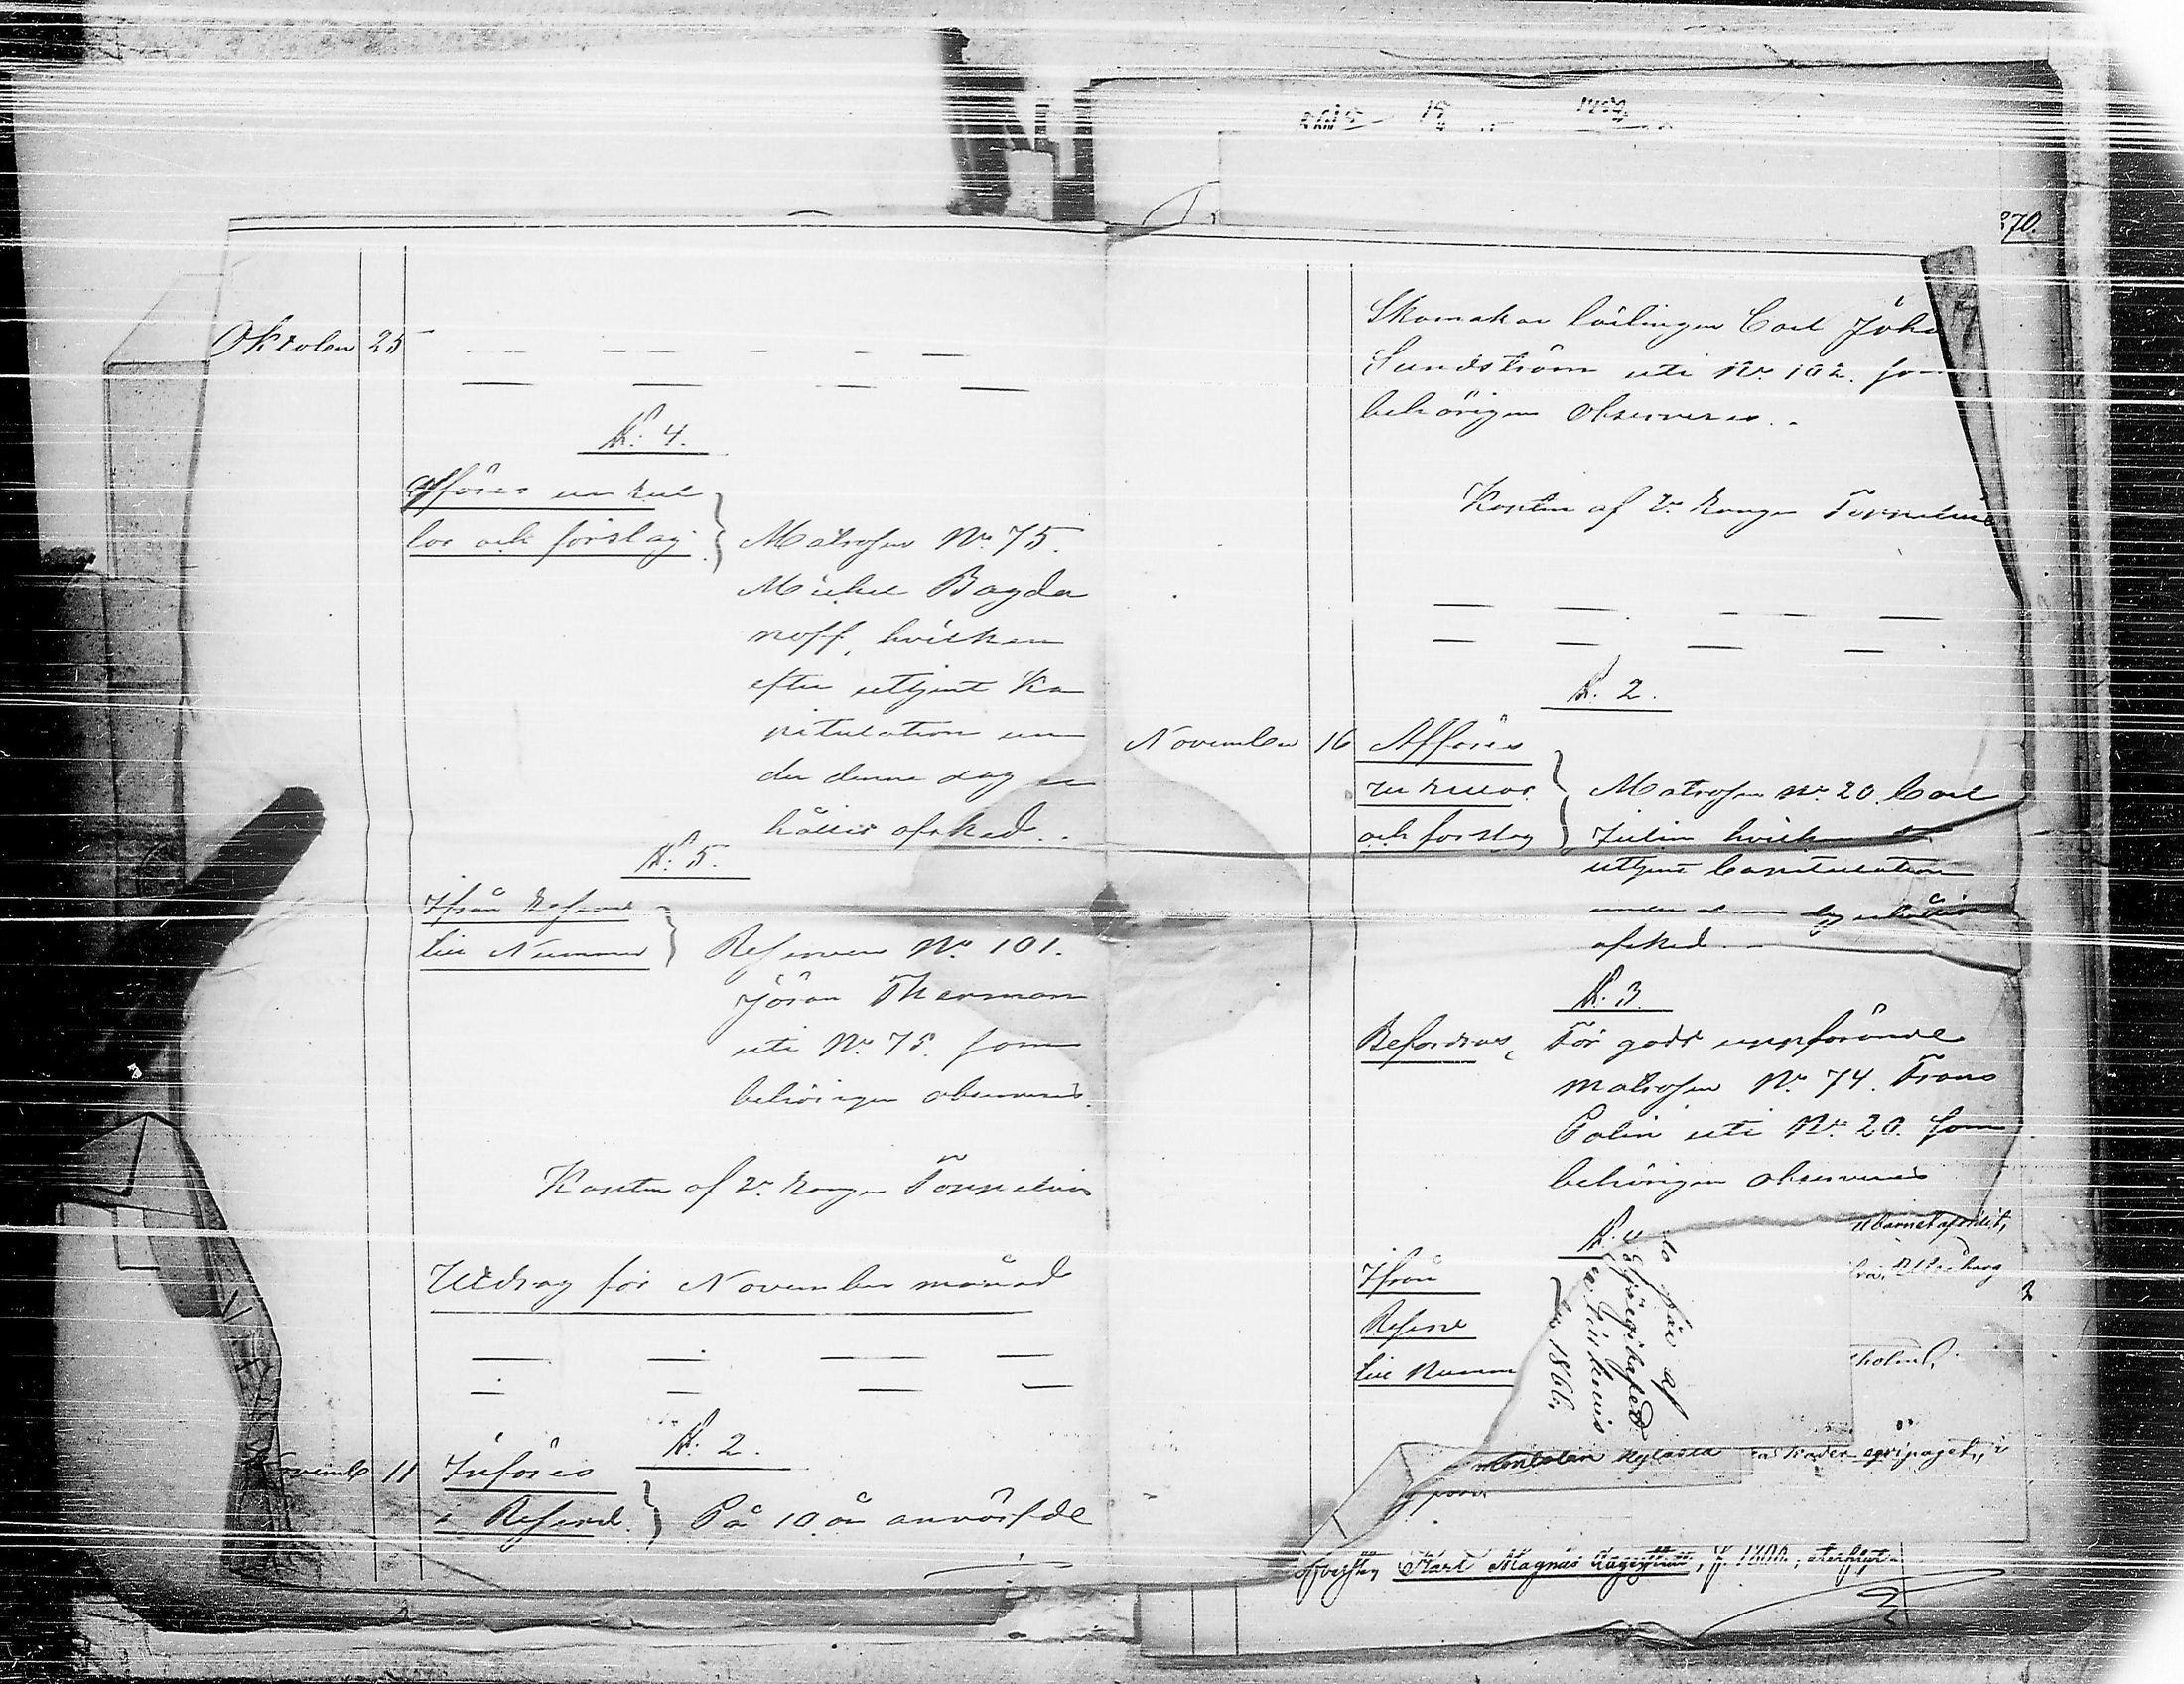 Oktober 25
K: 4.
Afföres ur rul
lor och förslag
Matrosen No. 75.
Michel Bogda
noff, hvilken
efter uttjent Ka
pitulation un
der denna dag er
håller afsked..
K: 5.
Ifrån Reserve
till Nummer
Reserven No. 101.
Jöran Therman
uti No. 75. som
behörigen observeras.
Kapten af 2a Rangen Toppelius
Utdrag för November månad
K: 2.
November 11 Införes
i Reserve.
På 10 år anvärfde
370.
Skomakar lärlingen Carl Joha
Sundström uti No. 102. som
behörigen Observeras..
Kapten af 2a Rangen Toppelius
K: 2.
November 16 Afföres
ur rullor
och förslag
Matrosen No. 20. Carl
Julin hvilken
uttjent Capitulation
under denna dag erhåller
afsked.
K: 3.
Befordras,
För godt uppförande
matrosen No. 74. Frans
Polin uti No. 20. som
behörigen observeras
K: 4
Ifrån
Reserve
till Numm
af
1866.
holm,
Karl Magnus